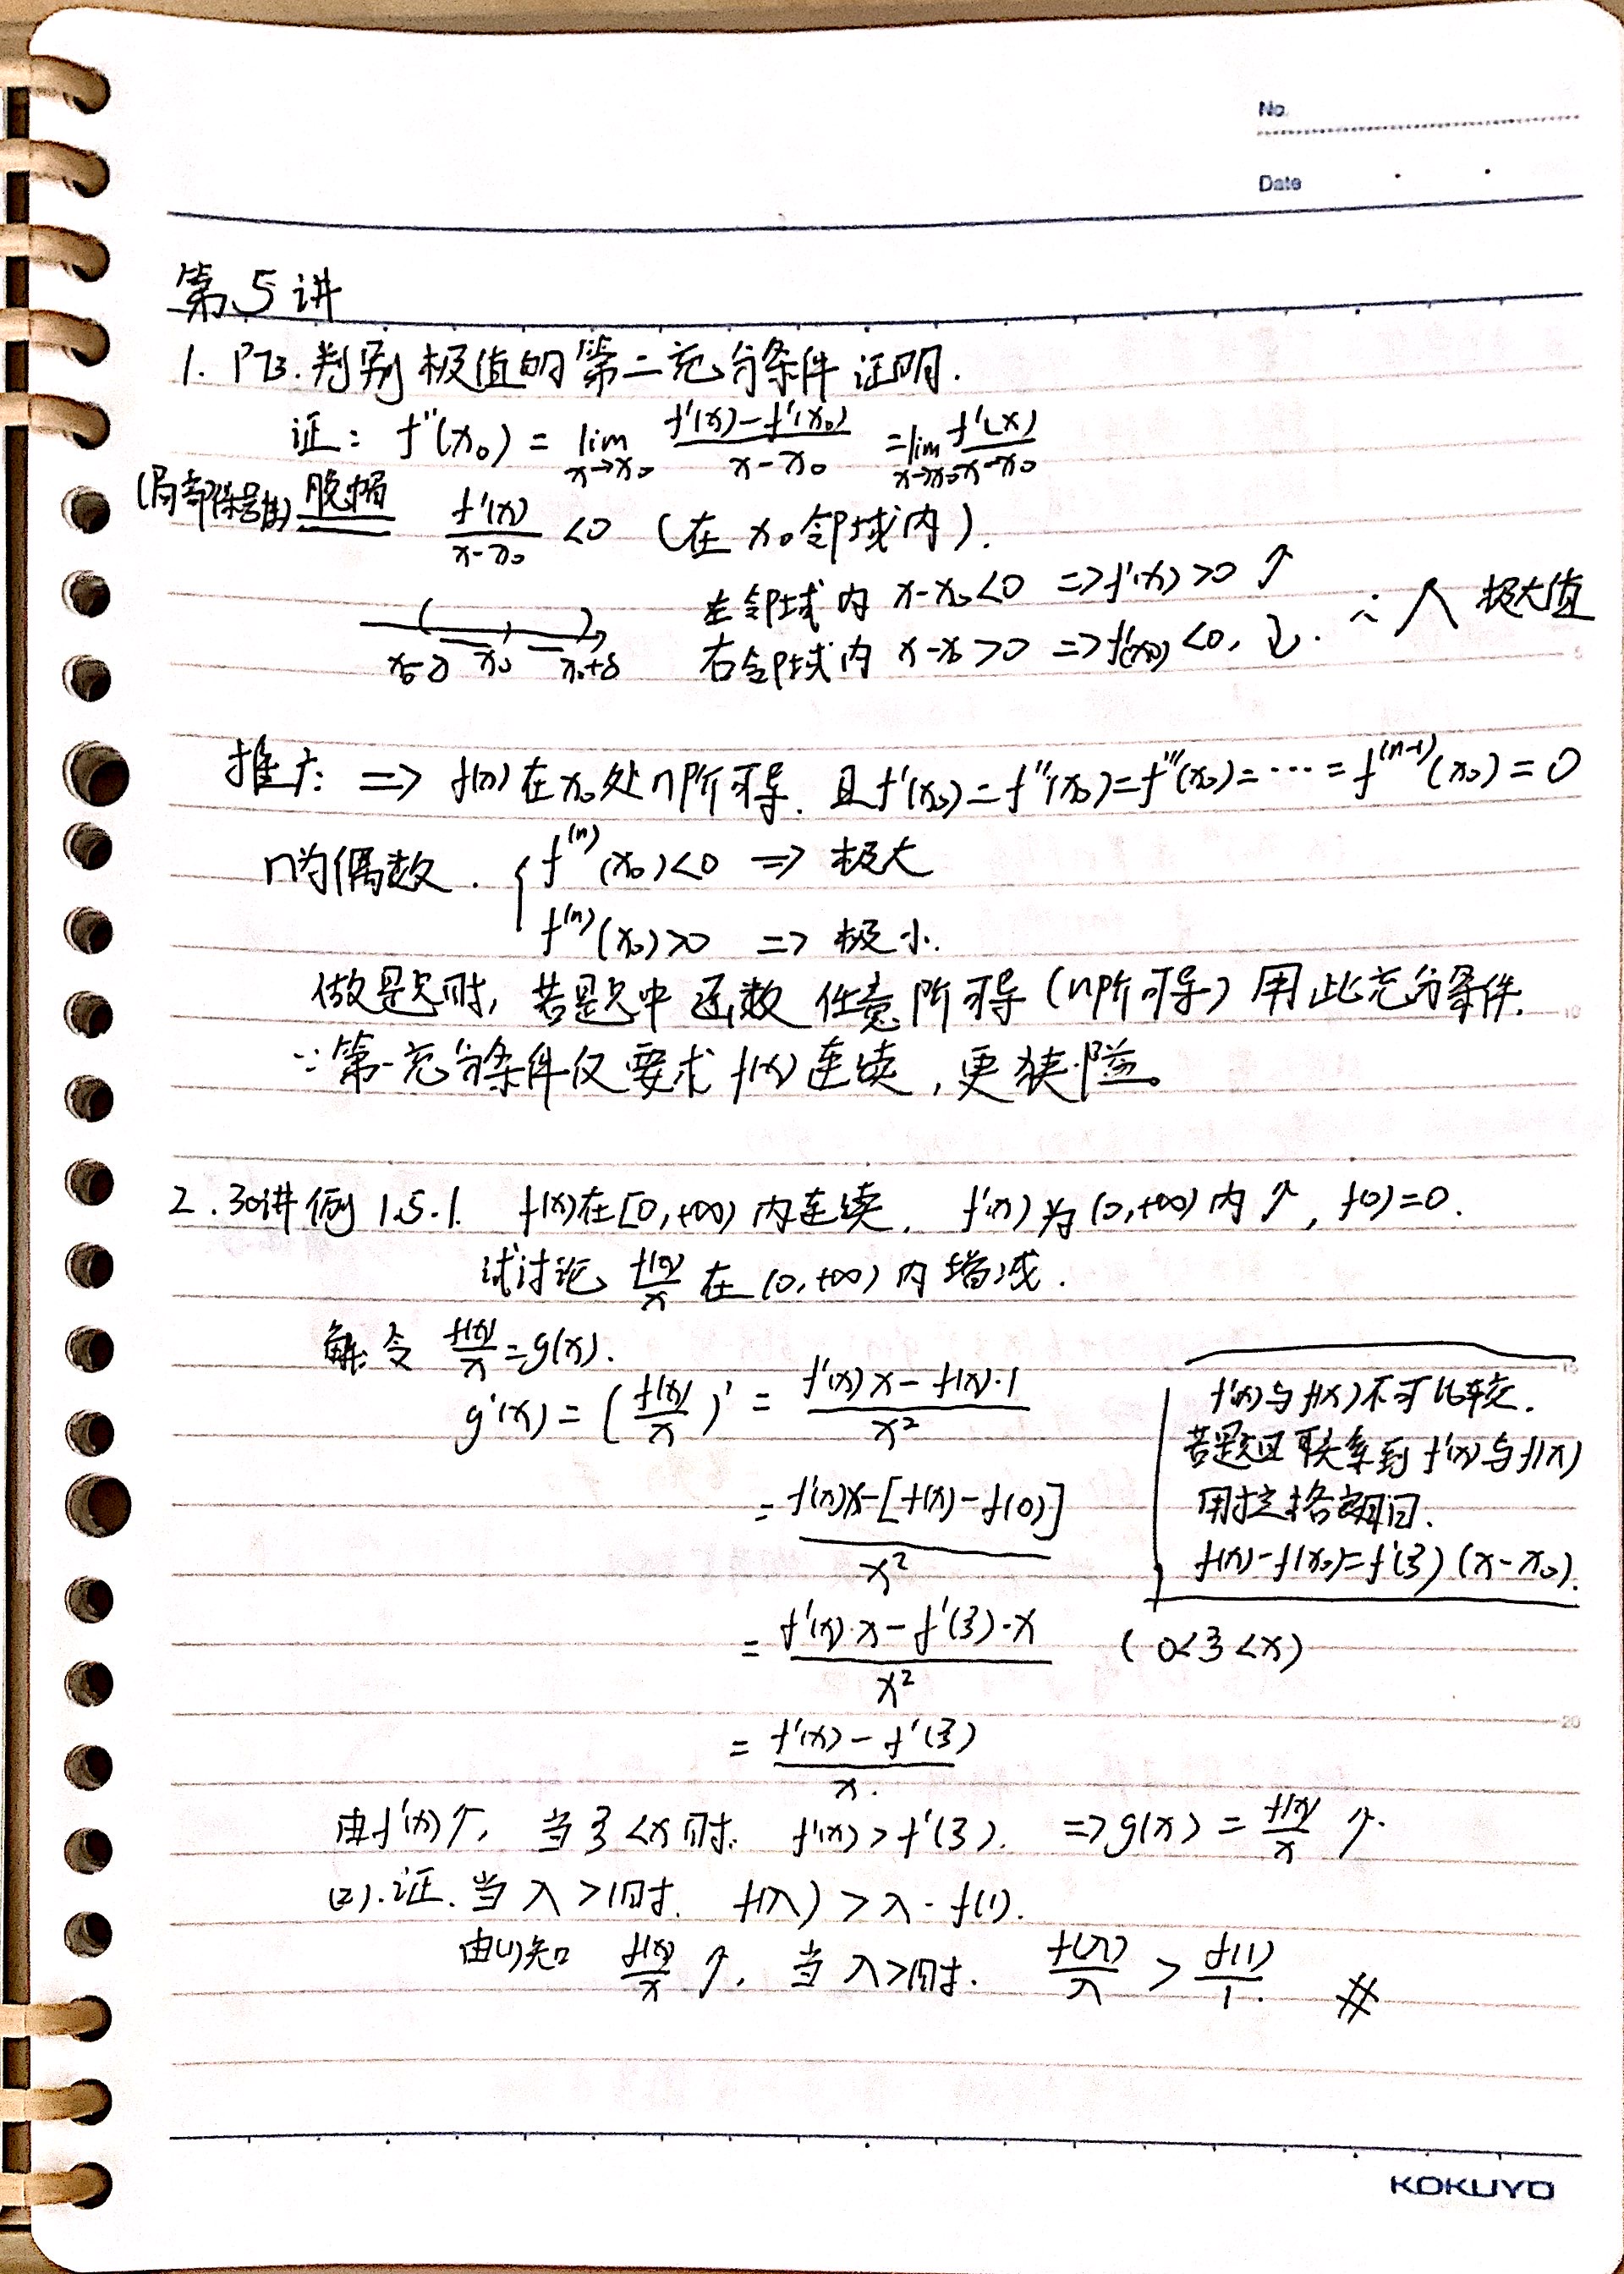 No.
Date
第5讲
1. P73.判别极值的第二充分条件证明.
证: f''(x₀) = lim_{x→x₀} (f'(x)-f'(x₀))/(x-x₀) = lim_{x→x₀} f'(x)/(x-x₀)
(局部保号性) 脱帽 f'(x)/(x-x₀) <0 (在x₀邻域内).
左邻域内 x-x₀<0 => f'(x)>0 ↑
右邻域内 x-x₀>0 => f'(x)<0, ↓. ∴ 极大值
x₀-δ x₀ x₀+δ
推广: => f(x)在x₀处n阶可导. 且f'(x₀)=f''(x₀)=f'''(x₀)=…=f^{(n-1)}(x₀)=0
n为偶数. { f^{(n)}(x₀)<0 => 极大
f^{(n)}(x₀)>0 => 极小.
做题时, 若题中函数任意阶可导(n阶可导)用此充分条件.
∵第一充分条件仅要求f(x)连续,更狭隘。
2.30讲例1.5.1. f(x)在[0,+∞)内连续. f'(x)为(0,+∞)内↑, f(0)=0.
试讨论 f(x)/x 在(0,+∞)内增减.
解:令 f(x)/x = g(x).
g'(x) = (f(x)/x)' = (f'(x)x-f(x)·1)/x²
= (f'(x)x-[f(x)-f(0)])/x²
= (f'(x)·x-f'(ξ)·x)/x² (0<ξ<x)
= (f'(x)-f'(ξ))/x.
f'(x)与f(x)不可比较.
若题目联系到f'(x)与f(x)
用拉格朗日.
f(x)-f(x₀)=f'(ξ)(x-x₀).
由f'(x)↑, 当ξ<x时. f'(x)>f'(ξ). => g(x) = f(x)/x ↑.
(2).证.当λ>1时. f(λ)>λ·f(1).
由(1)知 f(x)/x ↑. 当λ>1时. f(λ)/λ > f(1)/1. #
KOKUYO